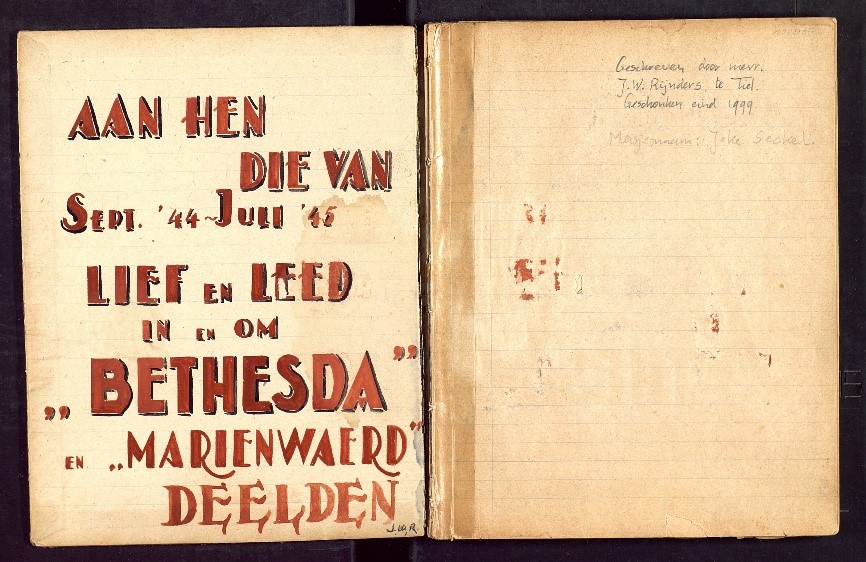 AAN HEN
DIE VAN
SEPT. '44 ~ JULI '45
LIEF EN LEED
IN EN OM
„BETHESDA"
EN „MARIENWAERD"
DEELDEN
J.W.R.
Geschreven door mevr.
J.W. Rijnders te Tiel.
Geschonken eind 1999
Meisjesnaam: Joke Seckel.